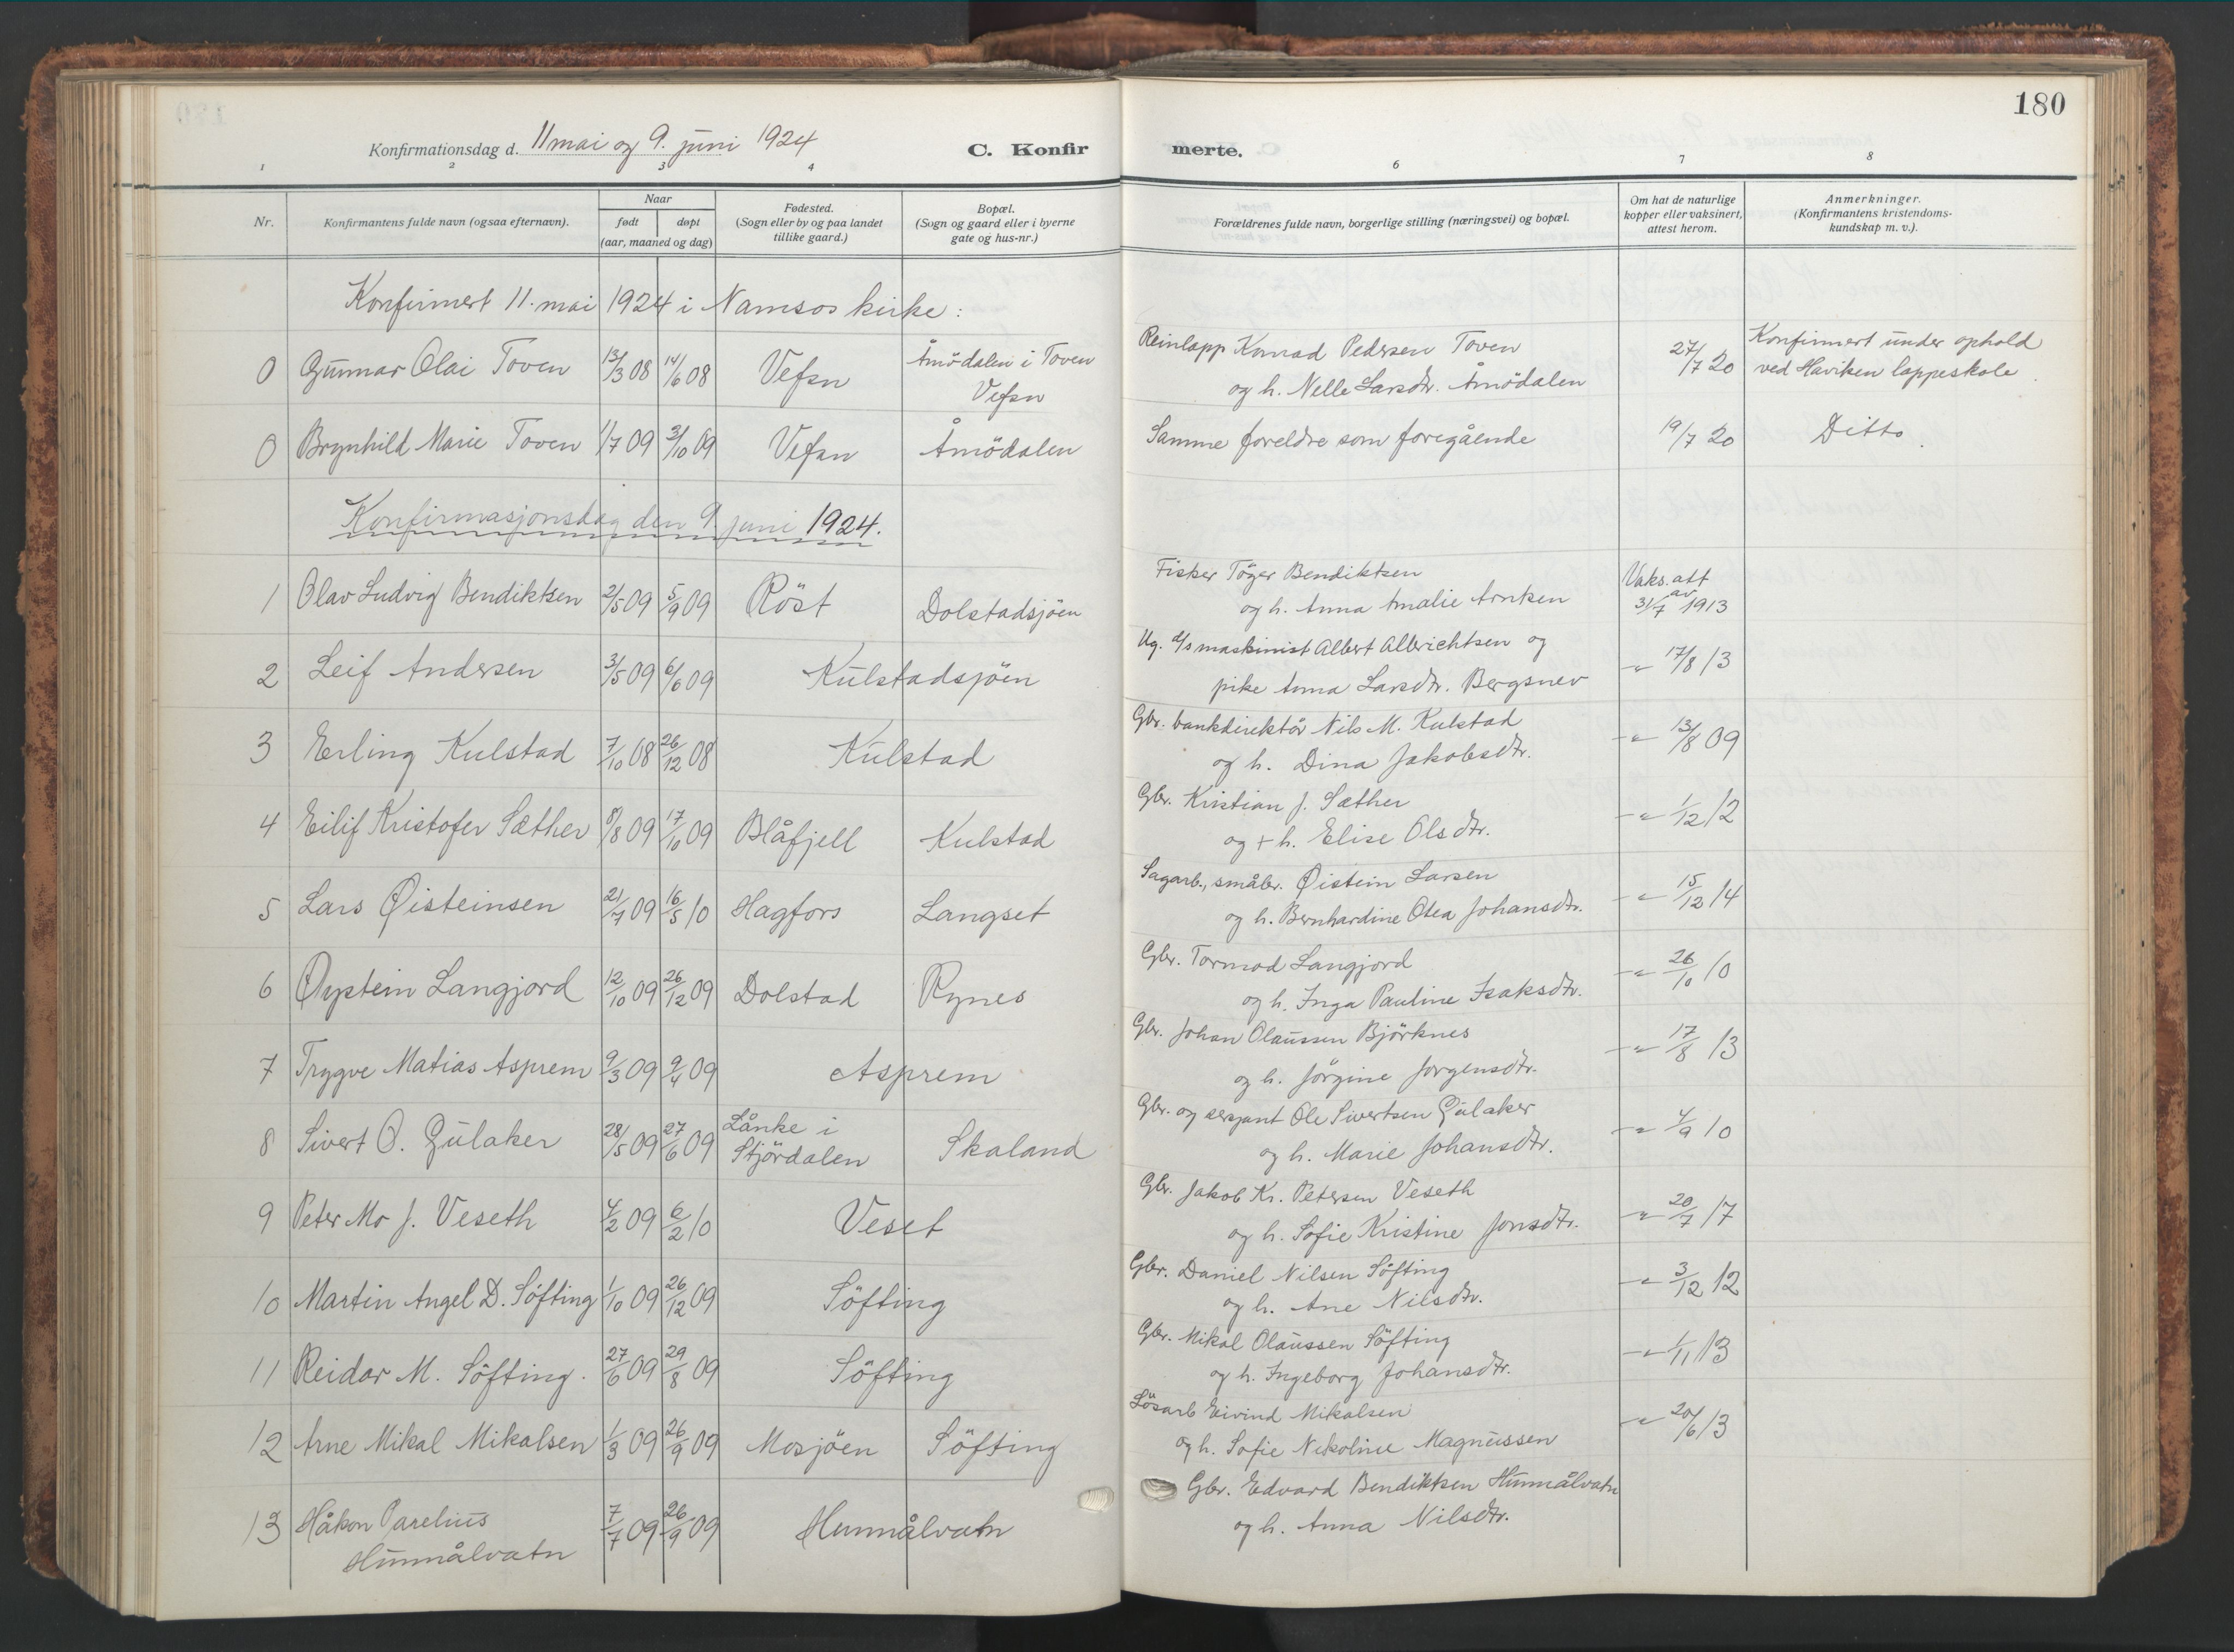 180
Konfirmationsdag d. 11 mai og 9. juni 1924
C. Konfirmerte.
1 2 3 4 6 7 8
Nr.
Konfirmantens fulde navn (ogsaa efternavn).
Naar
født døpt
(aar, maaned og dag)
Fødested.
(Sogn eller by og paa landet
tillike gaard.)
Bopæl.
(Sogn og gaard eller i byerne
gate og hus-nr.)
Forældrenes fulde navn, borgerlige stilling (næringsvei) og bopæl.
Om hat de naturlige
kopper eller vaksinert,
attest herom.
Anmerkninger.
(Konfirmantens kristendoms-
kundskap m. v.).
Konfirmert 11. mai 1924 i Namsos kirke:
0 Gunnar Olai Toven 13/3 08 14/6 08 Vefsn Åmödalen i Toven
Vefsn
Reinlapp Konrad Pedersen Toven
og h. Nelle Larsdtr. Åmödalen
27/7 20
Konfirmert under ophold
ved Haviken lappeskole.
0 Brynhild Marie Toven 1/7 09 3/10 09 Vefsn Åmödalen
Samme foreldre som foregående
19/7 20
Ditto.
Konfirmasjonsdag den 9. juni 1924.
1 Olav Ludvig Bendiktsen 2/5 09 5/9 09 Röst Dolstadsjöen
Fisker Töger Bendiktsen
og h. Anna Amalie Arntsen
Vaks. att
av
31/7 1913
2 Leif Andersen 3/5 09 6/6 09 Kulstadsjöen
Ug. d/s maskinist Albert Albrichtsen og
pike Anna Larsdtr. Bergsnev
-"- 17/8 13
3 Erling Kulstad 7/10 08 26/12 08 Kulstad
Gbr. bankdirektör Nils M. Kulstad
og h. Dina Jakobsdtr.
-"- 13/8 09
4 Eilif Kristofer Sæther 8/8 09 17/10 09 Blåfjell Kulstad
Gbr. Kristian J. Sæther
og + h. Elise Olsdtr.
-"- 1/12 12
5 Lars Øisteinsen 21/7 09 16/5 10 Hagfors Langset
Sagarb., småbr. Øistein Larsen
og h. Bernhardine Otea Johansdtr.
-"- 15/12 14
6 Øystein Langjord 12/10 09 26/12 09 Dolstad Rynes
Gbr. Tormod Langjord
og h. Inga Pauline Isaksdtr.
-"- 26/10 10
7 Trygve Matias Asprem 9/3 09 9/4 09 Asprem
Gbr. Johan Olaussen Björknes
og h. Jörgine Jorgensdtr.
-"- 17/8 13
8 Sivert O. Gulaker 28/5 09 27/6 09 Lånke i
Stjördalen
Skaland
Gbr. og sersjant Ole Sivertsen Gulaker
og h. Marie Johansdtr.
-"- 4/9 10
9 Peter Mo J. Veseth 4/2 09 6/2 10 Veset
Gbr. Jakob Kr. Petersen Veseth
og h. Sofie Kristine Jonsdtr.
-"- 20/7 17
10 Martin Angel D. Söfting 1/10 09 26/12 09 Söfting
Gbr. Daniel Nilsen Söfting
og h. Ane Nilsdtr.
-"- 3/12 12
11 Reidar M. Söfting. 27/6 09 29/8 09 Söfting
Gbr. Mikal Olaussen Söfting
og h. Ingeborg Johansdtr.
-"- 1/11 13
12 Arne Mikal Mikalsen 1/3 09 26/9 09 Mosjöen Söfting
Lösarb Eivind Mikalsen
og h. Sofie Nikoline Magnussen
-"- 20/6 13
13 Håkon Parelius
Hunnålvatn
7/7 09 26/9 09 Hunnålvatn
Gbr. Edvard Bendiktsen Hunnålvatn
og h. Anna Nilsdtr.